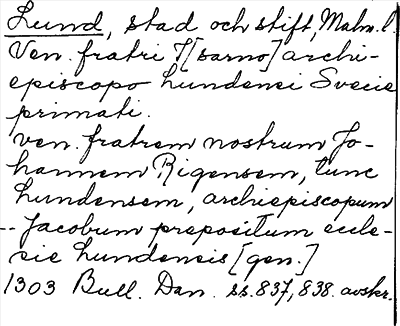 Lund, stad och stift, Malm. l.
Ven. fratri J[sarno] archi-
episcopo Lundensi Svecie
primati.
Ven. fratrem nostrum Jo-
hannem Rigensem, tunc
Lundensem, archiepiscopum
-- Jacobum prepositum eccle-
sie Lundensis [gen.]
1303 Bull. Dan. ss. 837, 838. avskr.